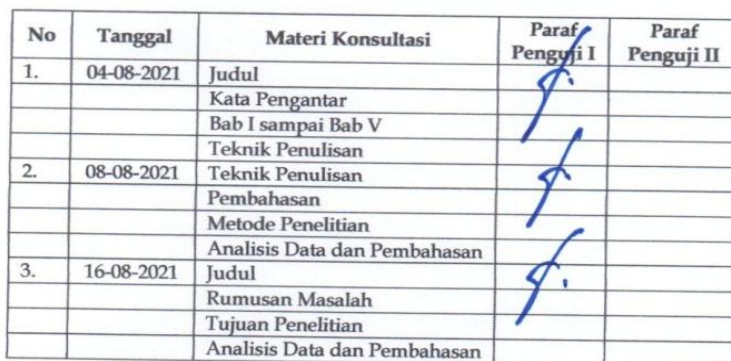 No Tanggal Materi Konsultasi Paraf Penguji I Paraf Penguji II
1. 04-08-2021 Judul
Kata Pengantar
Bab I sampai Bab V
Teknik Penulisan
2. 08-08-2021 Teknik Penulisan
Pembahasan
Metode Penelitian
Analisis Data dan Pembahasan
3. 16-08-2021 Judul
Rumusan Masalah
Tujuan Penelitian
Analisis Data dan Pembahasan